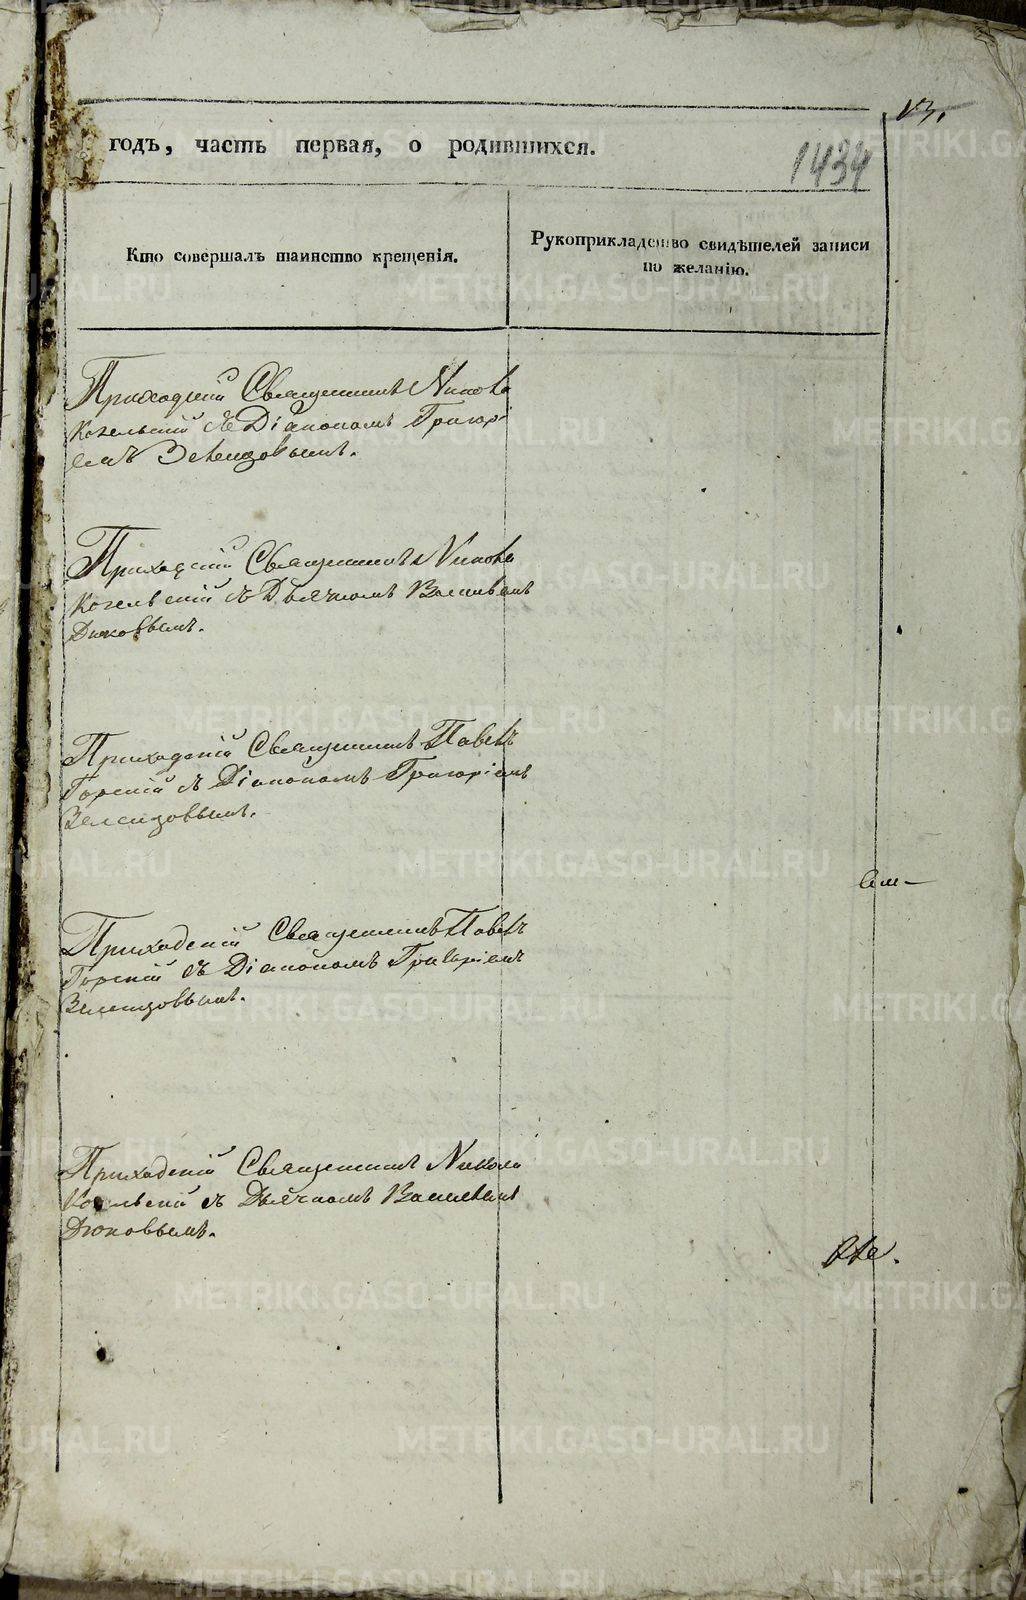 13.
годъ, часть первая, о родившихся.
1434
Кто совершалъ таинство крещенія.
Рукоприкладство свидѣтелей записи
по желанію.
Приходскій Священникъ Никола
Когельскій съ Діакономъ Григорі-
емъ Зеленцовымъ.
Приходскій Священникъ Никола
Когельскій съ Дьячкомъ Васильемъ
Дюковымъ.
Приходскій Священникъ Павелъ
Горскій съ Діакономъ Григоріемъ
Зеленцовымъ.
Приходскій Священникъ Павелъ
Горскій съ Діакономъ Григоріемъ
Зеленцовымъ.
Приходскій Священникъ Никола
Когельскій съ Дьячкомъ Васильемъ
Дюковымъ.
METRIKI.GASO-URAL.RU